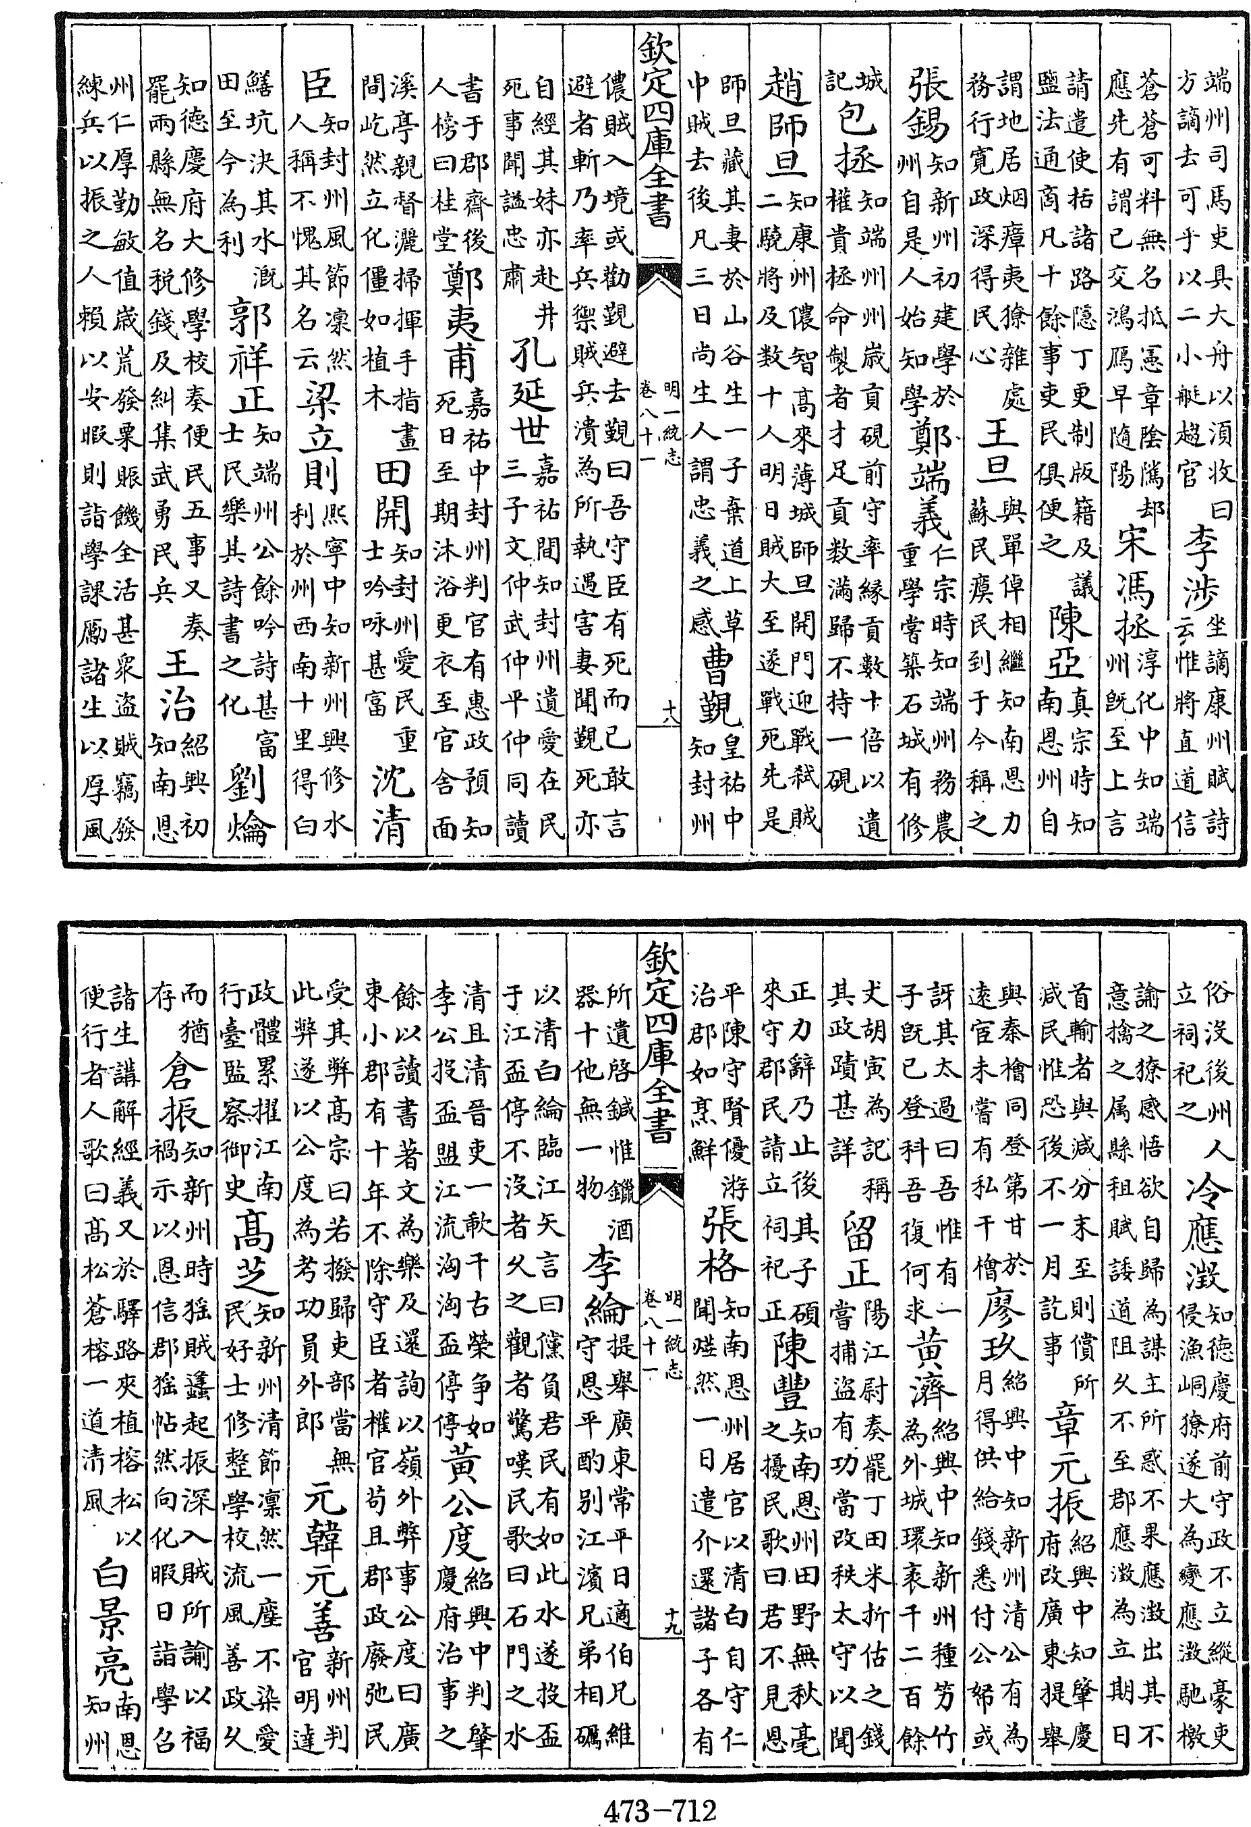 端州司馬吏具大舟以須收曰方謫去可乎以二小艇趨官李渉坐謫康州賦詩云惟將直道信
蒼蒼可料無名抵憲章陰隲却應先有謂已交鴻鴈早隨陽宋馮拯淳化中知端州旣至上言
請遣使括諸路隠丁更制版籍及議鹽法通商凡十餘事吏民俱便之陳亞真宗時知南恩州自
謂地居烟瘴夷獠雜處務行寛政深得民心王旦與單倬相繼知南恩力蘇民瘼民到于今稱之
張錫知新州初建學於州自是人始知學鄭端義仁宗時知端州務農重學嘗築石城有修
城記包拯知端州州歳貢硯前守率縁貢數十倍以遺權貴拯命製者才足貢数滿歸不持一硯
趙師旦知康州儂智髙來薄城師旦開門迎戰弑賊二驍將及数十人明日賊大至遂戰死先是
師旦藏其妻於山谷生一子棄道上草中賊去後凡三日尚生人謂忠義之感曹覲皇祐中知封州
欽定四庫全書
明一統志
卷八十一
十八
儂賊入境或勸覲避去覲曰吾守臣有死而已敢言避者斬乃率兵禦賊兵潰為所執遇害妻聞覲死亦
自經其妹亦赴井死事聞諡忠肅孔延世嘉祐間知封州遺愛在民三子文仲武仲平仲同讀
書于郡齋後人榜曰桂堂鄭夷甫嘉祐中封州判官有惠政預知死日至期沐浴更衣至官舍面
溪亭親督灑掃揮手指畫間屹然立化僵如植木田開知封州愛民重士吟咏甚富沈清
臣知封州風節凛然人稱不愧其名云梁立則熈寧中知新州興修水利於州西南十里得白
鱔坑決其水溉田至今為利郭祥正知端州公餘吟詩甚富士民樂其詩書之化劉爚
知德慶府大修學校奏便民五事又奏罷兩縣無名税錢及糾集武勇民兵王治紹興初知南恩
州仁厚勤敏值歳荒發粟賑饑全活甚衆盜賊竊發練兵以振之人頼以安暇則詣學課勵諸生以厚風
俗沒後州人立祠祀之冷應澂知德慶府前守政不立縱豪吏侵漁峒獠遂大為變應澂馳檄
諭之獠感悟欲自歸為謀主所惑不果應澂出其不意擒之属縣租賦諉道阻久不至郡應澂為立期日
首輸者與減分末至則償所減民惟恐後不一月訖事章元振紹興中知肇慶府改廣東提舉
與秦檜同登第甘於逺宦未嘗有私干檜廖玖紹興中知新州清公有為月得供給錢悉付公帑或
訝其太過曰吾惟有一子旣已登科吾復何求黄濟紹興中知新州種竻竹為外城環袤千二百餘
丈胡寅為記稱其政蹟甚詳留正陽江尉奏罷丁田米折估之錢嘗捕盜有功當改秩太守以聞
正力辭乃止後其子碩來守郡民請立祠祀正陳豐知南恩州田野無秋毫之擾民歌曰君不見恩
平陳守賢優游治郡如烹鮮張格知南恩州居官以清白自守仁聞㷀然一日遣介還諸子各有
欽定四庫全書
明一統志
卷八十一
十九
所遺啓鍼惟鑞酒器十他無一物李綸提舉廣東常平日適伯兄維守恩平酌别江濱兄弟相礪
以清白綸臨江矢言曰儻負君民有如此水遂投盃于江盃停不沒者久之觀者驚嘆民歌曰石門之水
清且清晉吏一歃千古榮争如李公投盃盟江流洶洶盃停停黄公度紹興中判肇慶府治事之
餘以讀書著文為樂及還詢以嶺外弊事公度曰廣東小郡有十年不除守臣者權官苟且郡政廢弛民
受其弊髙宗曰若撥歸吏部當無此弊遂以公度為考功員外郎元韓元善新州判官明達
政體累擢江南行臺監察御史髙芝知新州清節凛然一塵不染愛民好士修整學校流風善政久
而猶存倉振知新州時猺賊蠭起振深入賊所諭以福禍示以恩信郡猺帖然向化暇日詣學召
諸生講解經義又於驛路夾植榕松以便行者人歌曰髙松蒼榕一道清風白景亮南恩知州
473-712